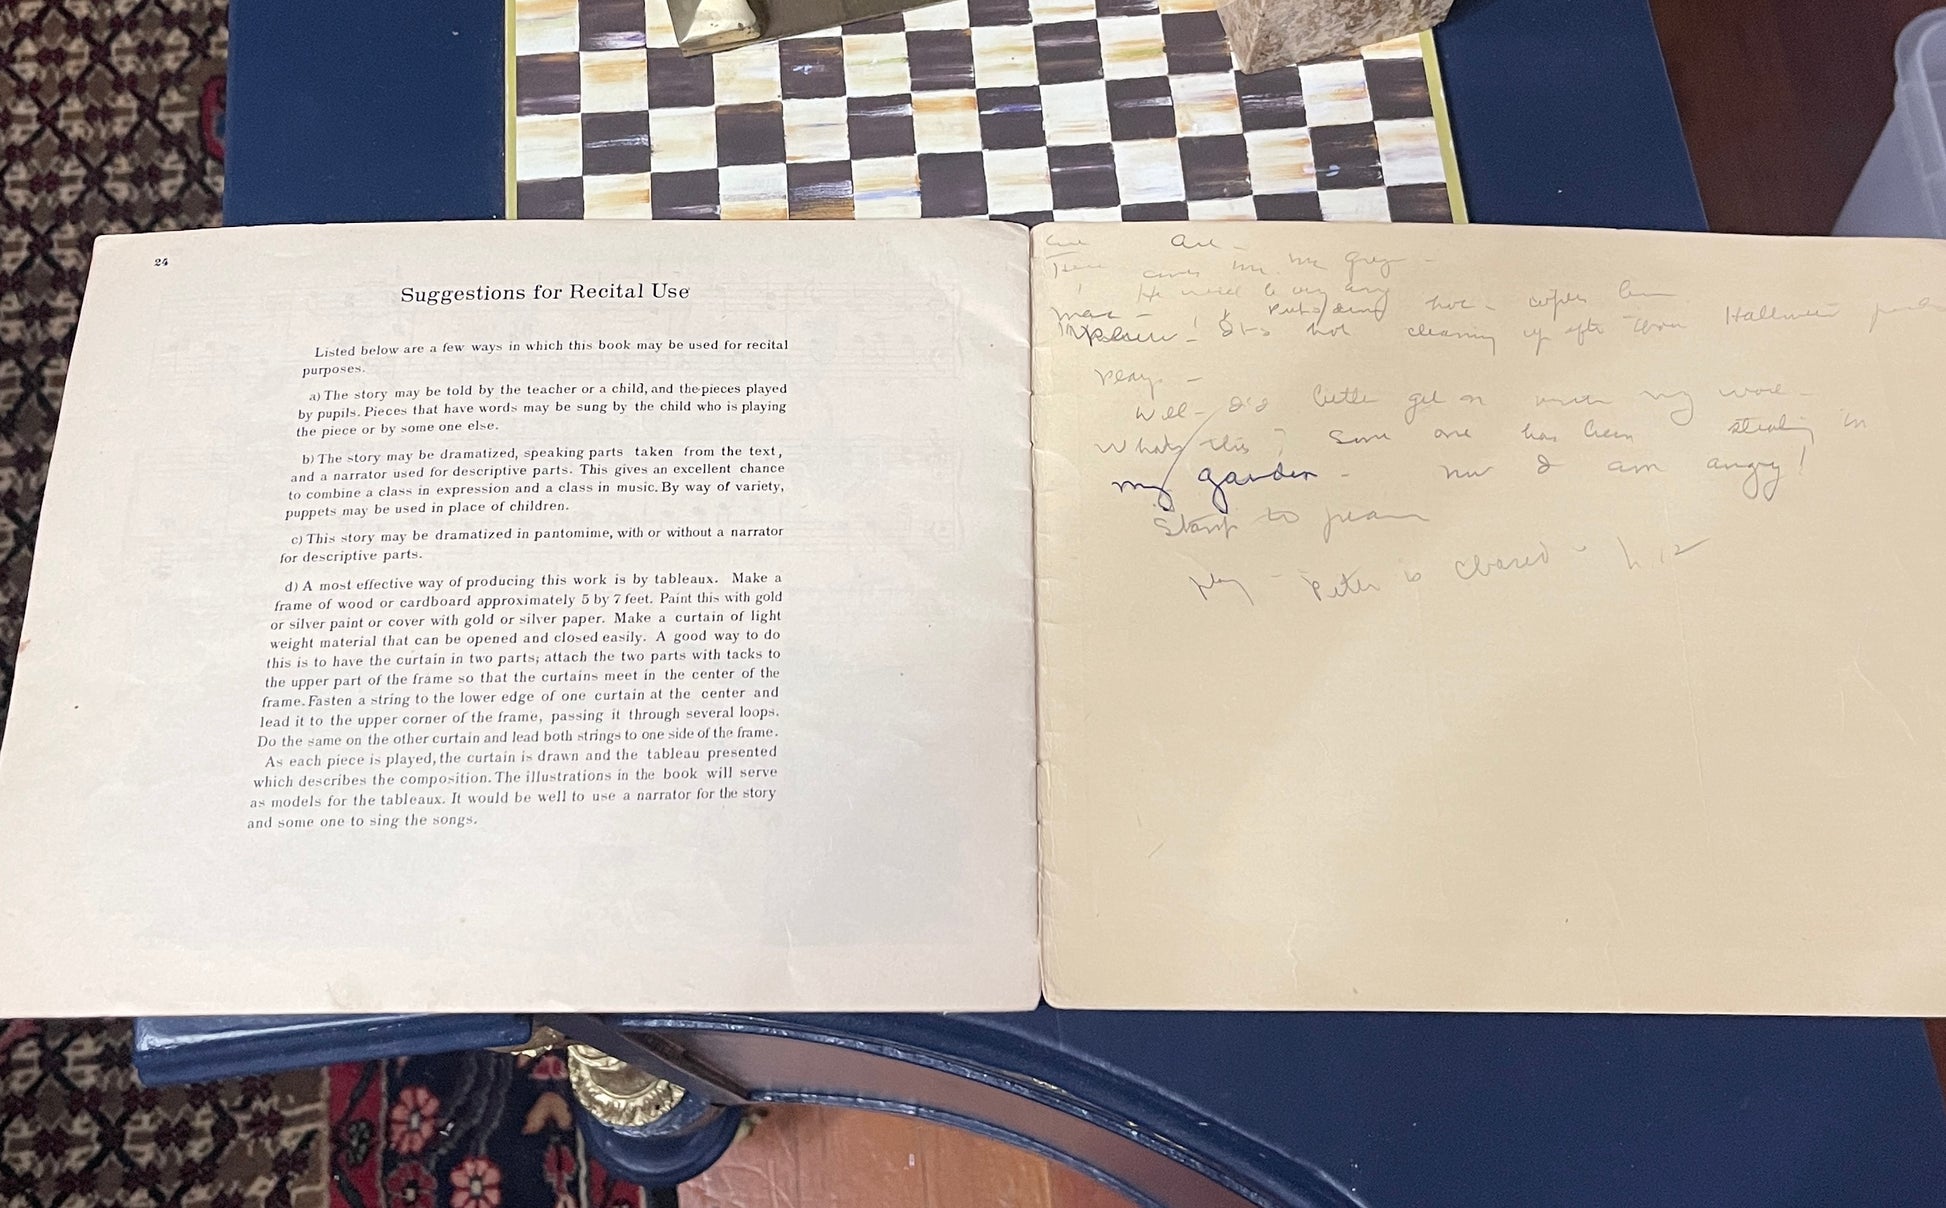 24
Suggestions for Recital Use
Listed below are a few ways in which this book may be used for recital
purposes.
a) The story may be told by the teacher or a child, and the pieces played
by pupils. Pieces that have words may be sung by the child who is playing
the piece or by some one else.
b) The story may be dramatized, speaking parts taken from the text,
and a narrator used for descriptive parts. This gives an excellent chance
to combine a class in expression and a class in music. By way of variety,
puppets may be used in place of children.
c) This story may be dramatized in pantomime, with or without a narrator
for descriptive parts.
d) A most effective way of producing this work is by tableaux. Make a
frame of wood or cardboard approximately 5 by 7 feet. Paint this with gold
or silver paint or cover with gold or silver paper. Make a curtain of light
weight material that can be opened and closed easily. A good way to do
this is to have the curtain in two parts; attach the two parts with tacks to
the upper part of the frame so that the curtains meet in the center of the
frame. Fasten a string to the lower edge of one curtain at the center and
lead it to the upper corner of the frame, passing it through several loops.
Do the same on the other curtain and lead both strings to one side of the frame.
As each piece is played, the curtain is drawn and the tableau presented
which describes the composition. The illustrations in the book will serve
as models for the tableaux. It would be well to use a narrator for the story
and some one to sing the songs.
Here comes Mr. Mc
He
hot
hot cleaning up after
play -
Well - I'd better get on with my work -
Whats this? Some one has been stealing in
my garden - now I am angry!
Stamp to
play - Peter is chased -